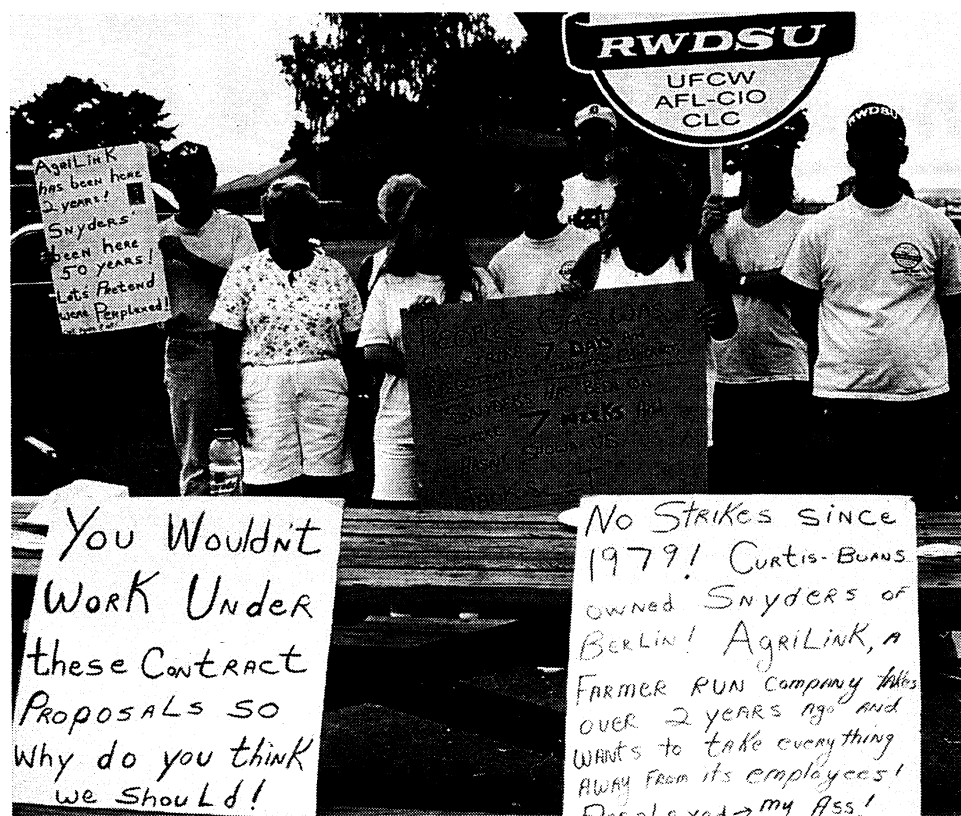 RWDSU
UFCW
AFL-CIO
CLC
RWDSU
AgriLink
has been here
2 years!
Snyders'
been here
50 years!
Lets Pretend
were Perplexed!
People's Gas was
7 Days
Snyders has been on
Strike 7 weeks
show us
You Wouldn't
Work Under
these Contract
Proposals so
Why do you think
we should!
No Strikes since
1979! Curtis-Burns
owned Snyders of
Berlin! AgriLink, a
Farmer run company takes
over 2 years ago and
wants to take everything
away from its employees!
my Ass!